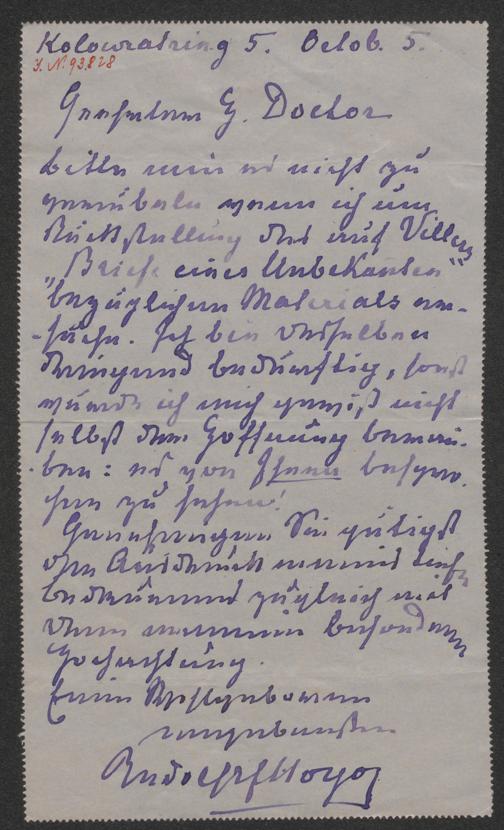 Kolowratring 5. Octob. 5.
J. N. 93.828
Geehrtester H. Doctor
bitte mir es nicht zu
verübeln wenn ich um
Rückstellung des auf Villers
„Briefe eines Unbekanten“
bezüglichen Materials an-
-suche. Ich bin desselben
dringend bedürftig, sonst
würde ich mich gewiß nicht
selbst der Hoffnung berau-
-ben: es von Ihnen bespro-
chen zu sehen!
Genehmigen Sie gütigst
den Ausdruck meines
Bedauerns zugleich mit
dem meiner besondern
Hochachtung.
Euer Wohlgeboren
ergebenster
Rudolf Hoyos